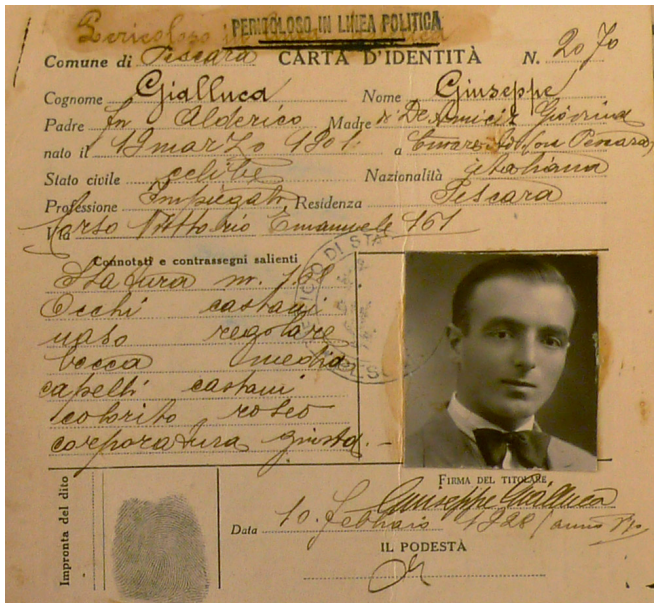 PERICOLOSO IN LINEA POLITICA
Pericoloso
Comune di Pescara CARTA D'IDENTITÀ N. 2070
Cognome Gialluca Nome Giuseppe
Padre fu Alderico Madre di De Amicis Giovina
nato il 19 marzo 1901 a
Stato civile celibe Nazionalità italiana
Professione Impiegato Residenza Pescara
Via Corso Vittorio Emanuele 161
Connotati e contrassegni salienti
Statura m. 1.68
Occhi castani
naso regolare
bocca media
capelli castani
colorito roseo
corporatura giusta.-
FIRMA DEL TITOLARE
Giuseppe Gialluca
Impronta del dito
Data 10. febbraio
IL PODESTÀ